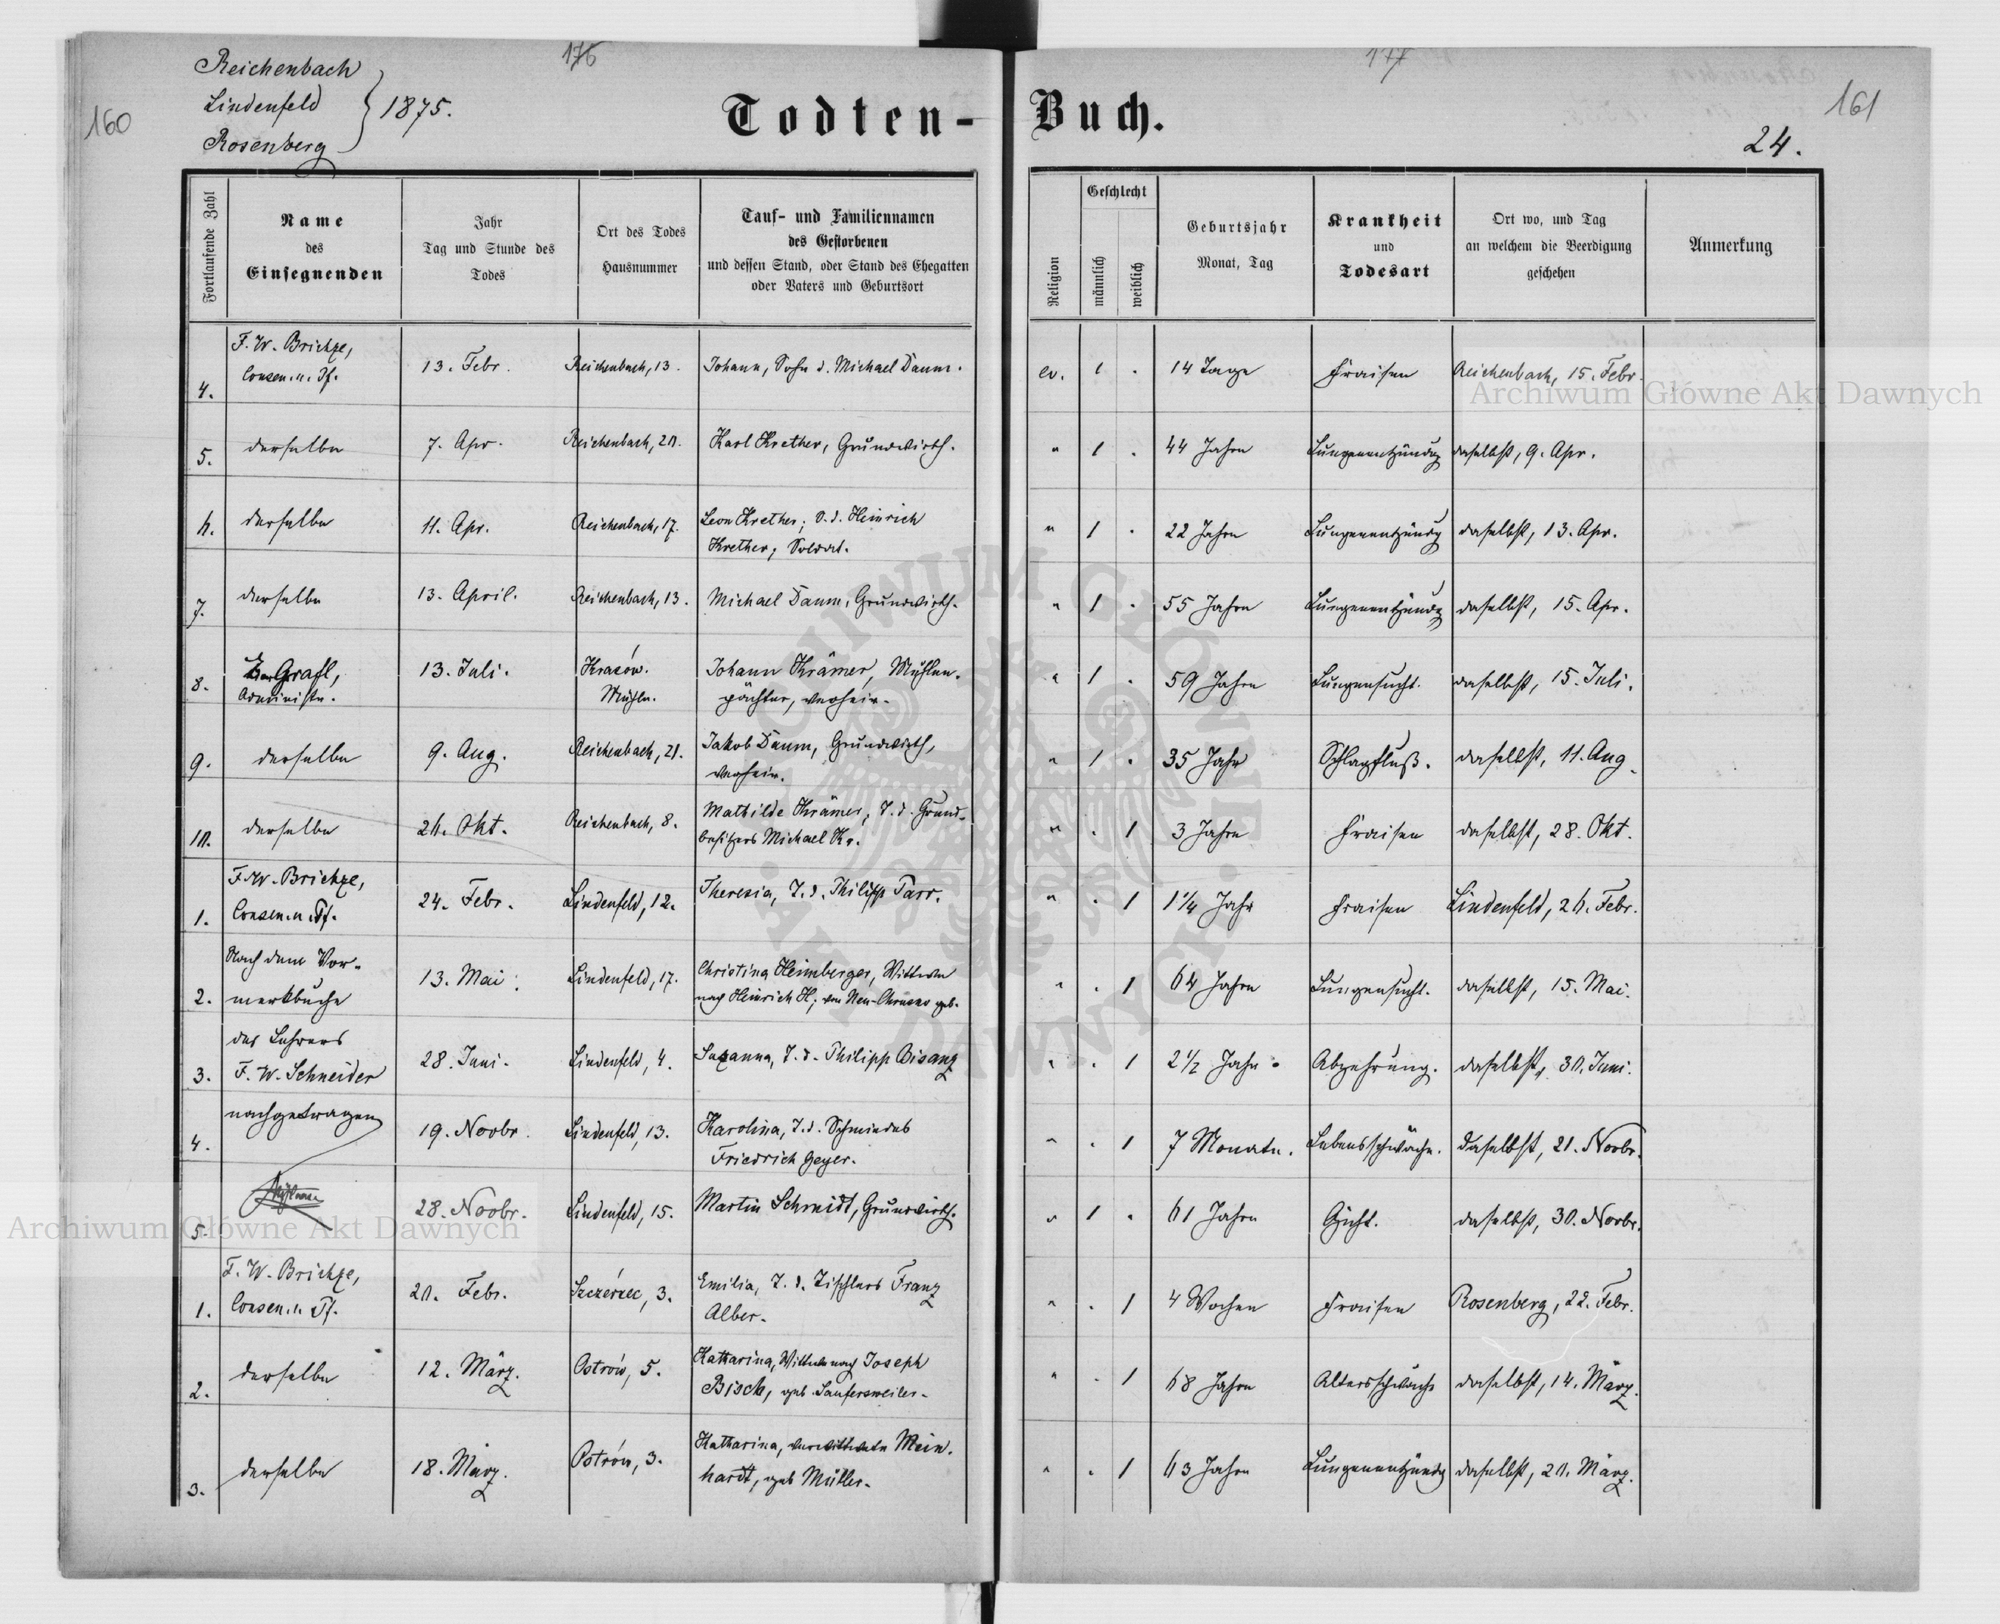 Reichenbach
Lindenfeld
Rosenberg
1875.
160
176
177
161
24.
Todten-Buch.
Fortlaufende Zahl
Name
des
Einsegnenden
Jahr
Tag und Stunde des
Todes
Ort des Todes
Hausnummer
Tauf- und Familiennamen
des Gestorbenen
und dessen Stand, oder Stand des Ehegatten
oder Vaters und Geburtsort
Religion
Geschlecht
männlich
weiblich
Geburtsjahr
Monat, Tag
Krankheit
und
Todesart
Ort wo, und Tag
an welchem die Beerdigung
geschehen
Anmerkung
4. F. W. Brickze, Consen. u. Pf. 13. Febr. Reichenbach, 13. Johann, Sohn d. Michael Daum. ev. 1 . 14 Tage Fraisen Reichenbach, 15. Febr.
5. derselbe 7. Apr. Reichenbach, 20. Karl Krether, Grundwirth. " 1 . 44 Jahre Lungenentzündg daselbst, 9. Apr.
6. derselbe 11. Apr. Reichenbach, 17. Leon Krether, S. d. Heinrich
Krether, Soldat. " 1 . 22 Jahre Lungenentzündg daselbst, 13. Apr.
7. derselbe 13. April. Reichenbach, 13. Michael Daum, Grundwirth. " 1 . 55 Jahre Lungenentzündg daselbst, 15. Apr.
8. Grafl, Administr. 13. Juli. Krasów. Mühle. Johann Krämer, Mühlen-
pächter, verheir. " 1 . 59 Jahre Lungensucht. daselbst, 15. Juli.
9. derselbe 9. Aug. Reichenbach, 21. Jakob Daum, Grundwirth,
verheir. " 1 . 35 Jahr Schlagfluß. daselbst, 11. Aug.
10. derselbe 26. Okt. Reichenbach, 8. Mathilde Krämer, T. d. Grund-
besitzers Michael Kr. " . 1 3 Jahre Fraisen daselbst, 28. Okt.
1. F. W. Brickze, Consen. u. Pf. 24. Febr. Lindenfeld, 12. Theresia, T. d. Philipp Parr. " . 1 1 1/4 Jahr Fraisen Lindenfeld, 26. Febr.
2. Nach dem Vor-
merkbuche 13. Mai. Lindenfeld, 17. Christina Heimberger, Wittwe
nach Heinrich H., von Neu-Chrusno geb. " . 1 64 Jahre Lungensucht. daselbst, 15. Mai.
3. des Lehrers
F. W. Schneider 28. Juni. Lindenfeld, 4. Suzanna, T. d. Philipp Bisanz " . 1 2 1/2 Jahre Abzehrung. daselbst, 30. Juni.
4. nachgetragen 19. Novbr. Lindenfeld, 13. Karolina, T. d. Schmiedes
Friedrich Geyer. " . 1 7 Monate. Lebensschwäche. daselbst, 21. Novbr.
5. 28. Novbr. Lindenfeld, 15. Martin Schmidt, Grundwirth. " 1 . 61 Jahre Gicht. daselbst, 30. Novbr.
1. F. W. Brickze, Consen. u. Pf. 20. Febr. Szczérzec, 3. Emilia, T. d. Tischlers Franz
Alber. " . 1 4 Wochen Fraisen Rosenberg, 22. Febr.
2. derselbe 12. März. Ostrów, 5. Katharina, Wittwe nach Joseph
Bisch, geb. Laufersweiler. " . 1 68 Jahre Altersschwäche daselbst, 14. März.
3. derselbe 18. März. Ostrów, 3. Katharina, verwittwete Mein-
hardt, geb Müller. " . 1 63 Jahre Lungenentzündg daselbst, 20. März.
Archiwum Główne Akt Dawnych
Archiwum Główne Akt Dawnych
ARCHIWUM GŁÓWNE AKT DAWNYCH